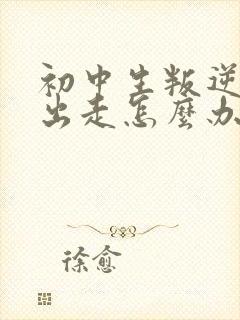 初中生叛逆
出走怎麼办
徐愈